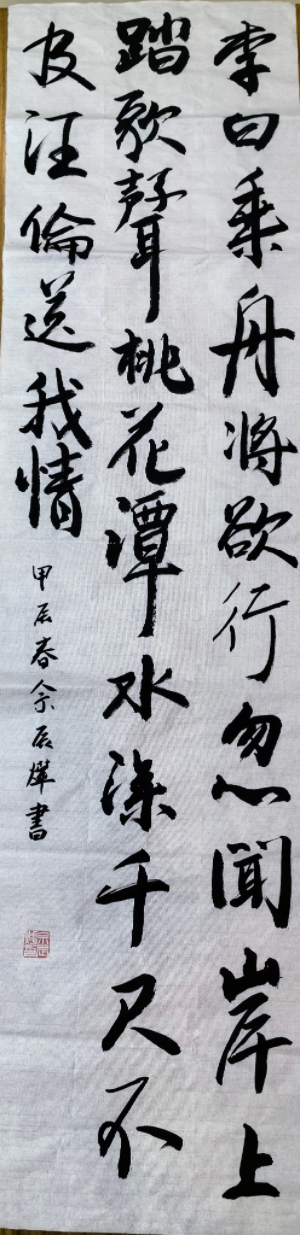 李白乘舟將欲行忽聞岸上
踏歌聲桃花潭水深千尺不
及汪倫送我情
甲辰春余辰燁書